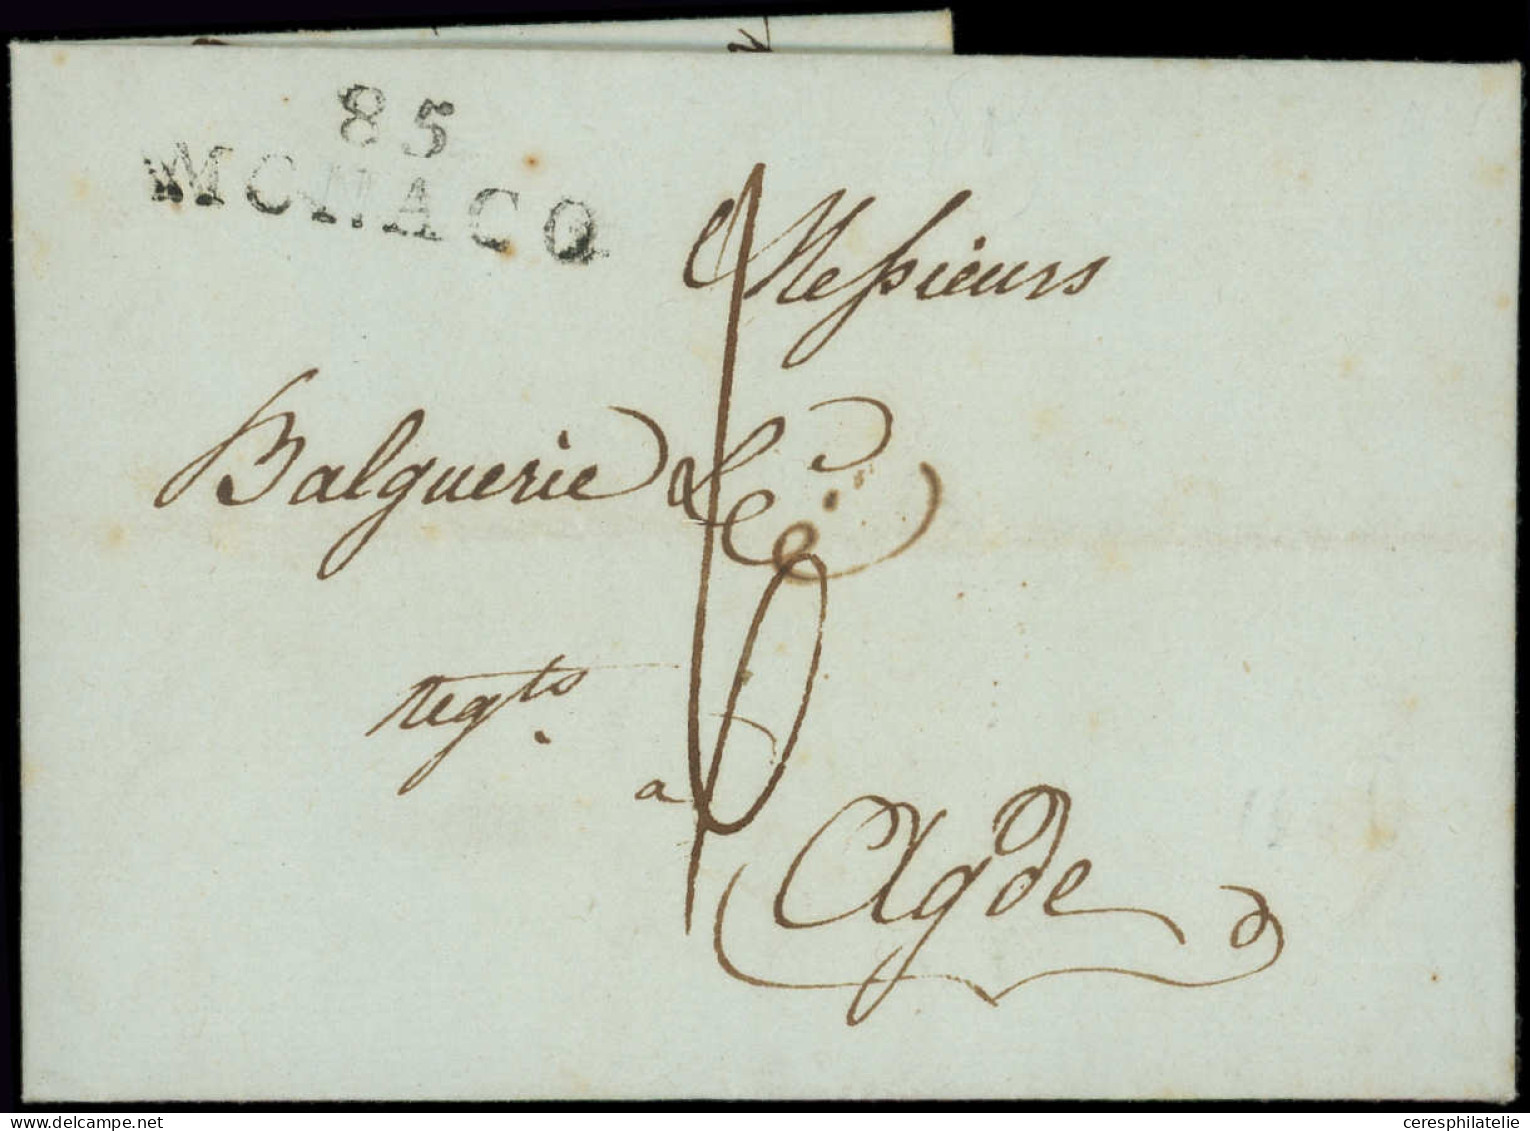 85
MONACO
Messieurs
Balguerie & Cie
Negts
a Agde
delcampe.net
ceresphilatelie